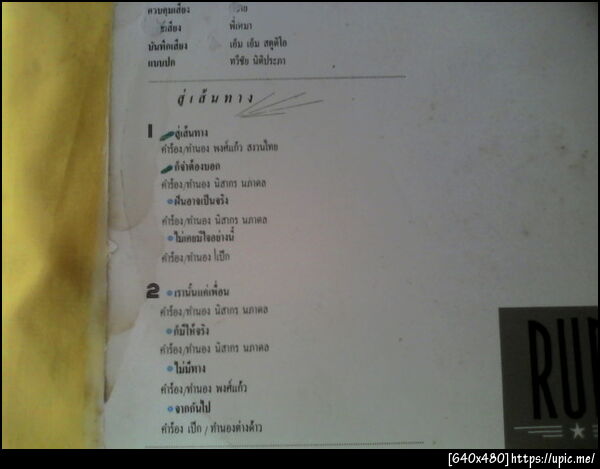 ควบคุมเสียง
บันทึกเสียง เอ็ม เอ็ม สตูดิโอ
แบบปก ทวีชัย นิติประภา
สู่เส้นทาง
1 สู่เส้นทาง
คำร้อง/ทำนอง พงศ์แก้ว สงวนไทย
ก็จำต้องบอก
คำร้อง/ทำนอง นิสากร นภาดล
ฝันอาจเป็นจริง
คำร้อง/ทำนอง นิสากร นภาดล
ไม่เคยมีใจอย่างนี้
คำร้อง/ทำนอง เป๊ก
2 เรานั้นแค่เพื่อน
คำร้อง/ทำนอง นิสากร นภาดล
ก็มีให้จริง
คำร้อง/ทำนอง นิสากร นภาดล
ไม่มีทาง
คำร้อง/ทำนอง พงศ์แก้ว
จากกันไป
คำร้อง เป๊ก / ทำนองต่างด้าว
[640x480]https://upic.me/